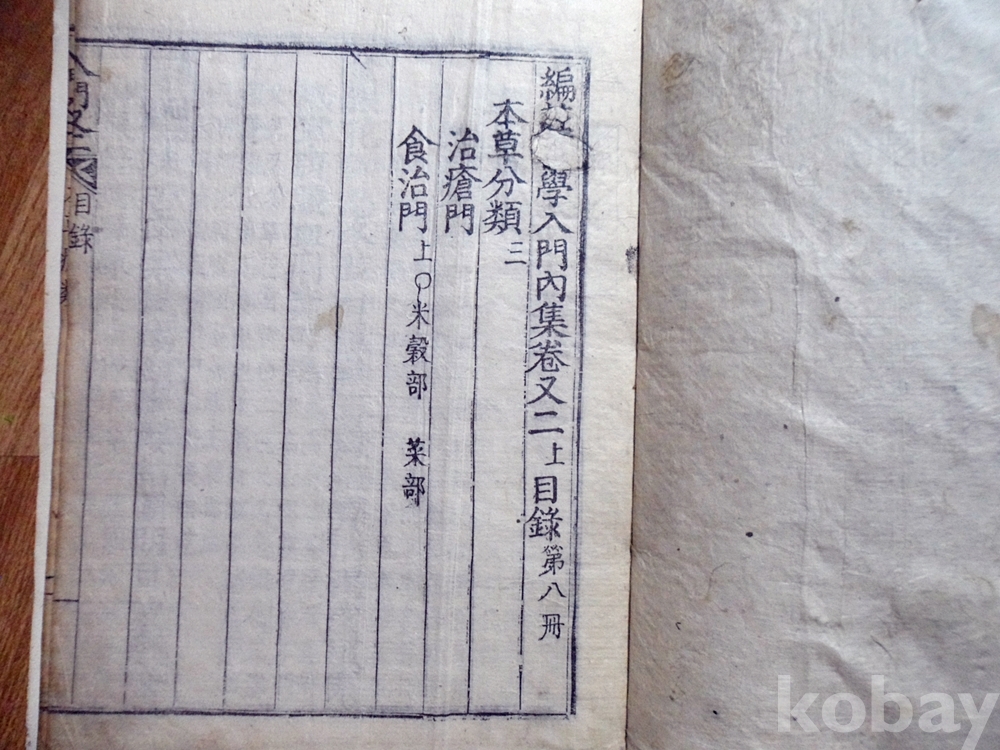 編註學入門內集卷又二上目錄第八冊
本草分類三
治瘡門
食治門上〇米穀部 菜部
入門
目錄
kobay